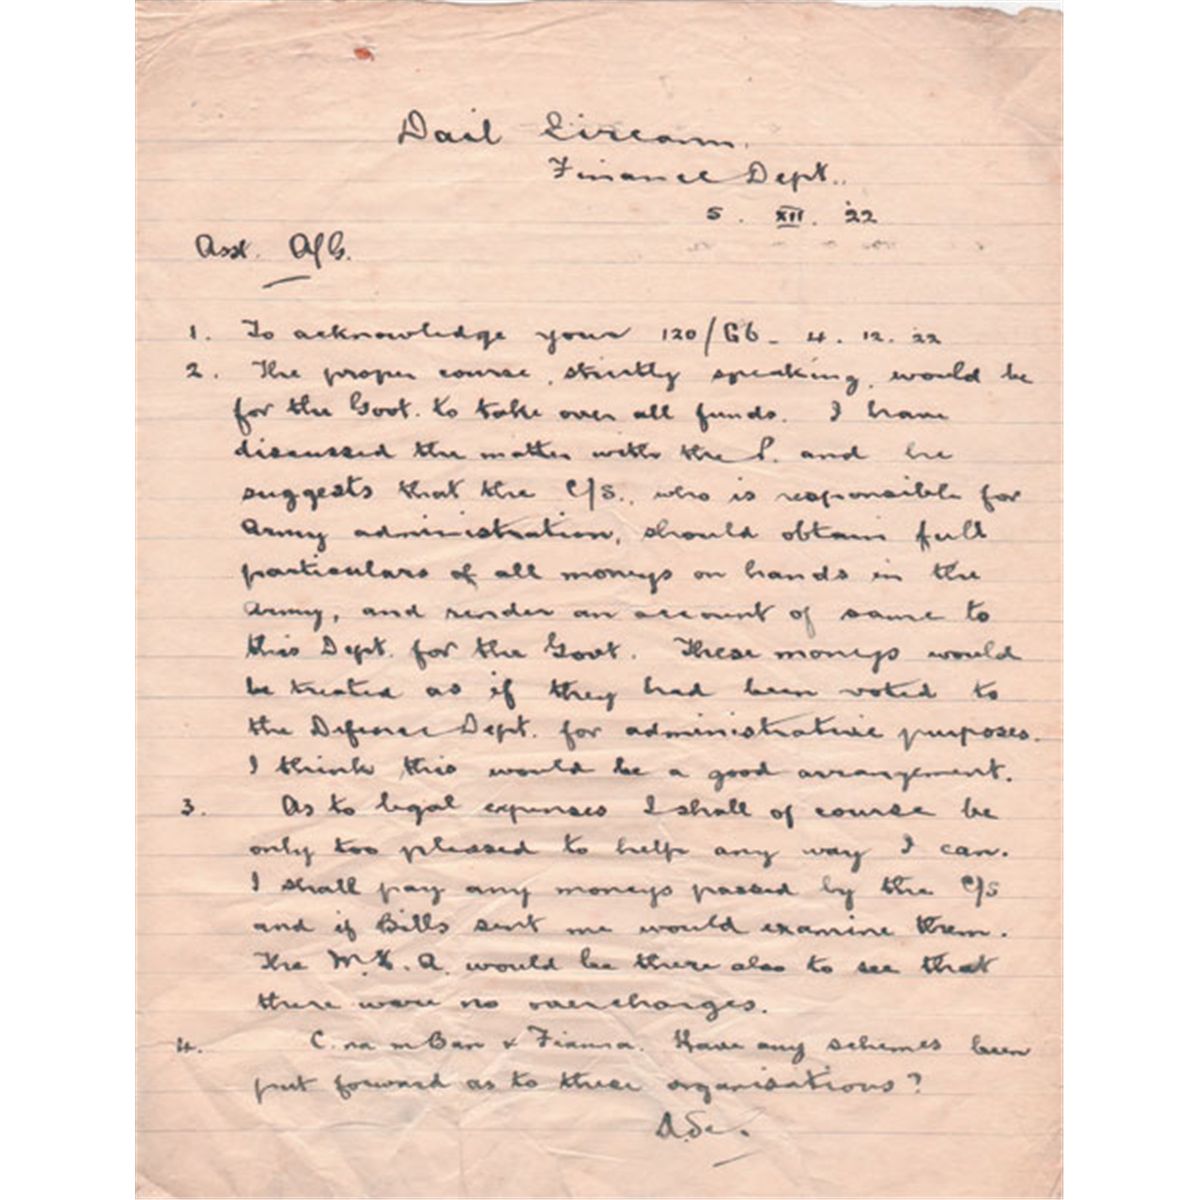 Dail Eireann.
Finance Dept.
5. XII. '22
Asst. A/G.
1. To acknowledge your 120/Gb - 4. 12. 22
2. The proper course, strictly speaking, would be
for the Govt. to take over all funds. I have
discussed the matter with the P. and he
suggests that the C/S., who is responsible for
Army administration, should obtain full
particulars of all moneys on hands in the
Army, and render an account of same to
this Dept. for the Govt. These moneys would
be treated as if they had been voted to
the Defence Dept. for administrative purposes.
I think this would be a good arrangement.
3. As to legal expenses I shall of course be
only too pleased to help any way I can.
I shall pay any moneys passed by the C/S
and if Bills sent me would examine them.
The M.L.A. would be there also to see that
there were no overcharges.
4. C. na mBan & Fianna. Have any schemes been
put forward as to these organisations?